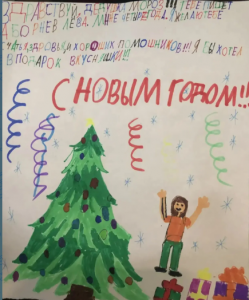 ЗДРАСТВУЙ, ДЕДУШКА МОРОЗ!!! ТЕБЕ ПИШЕТ
ЛЕВА. МНЕ ЖЕЛАЮ ТЕБЕ
ЗДОРОВЬЯ И ХОРОШИХ ПОМОШНИКОВ!!! Я БЫ ХОТЕЛ
В ПОДАРОК ВКУСНЯШКИ!!!
С НОВЫМ ГОДОМ!!!